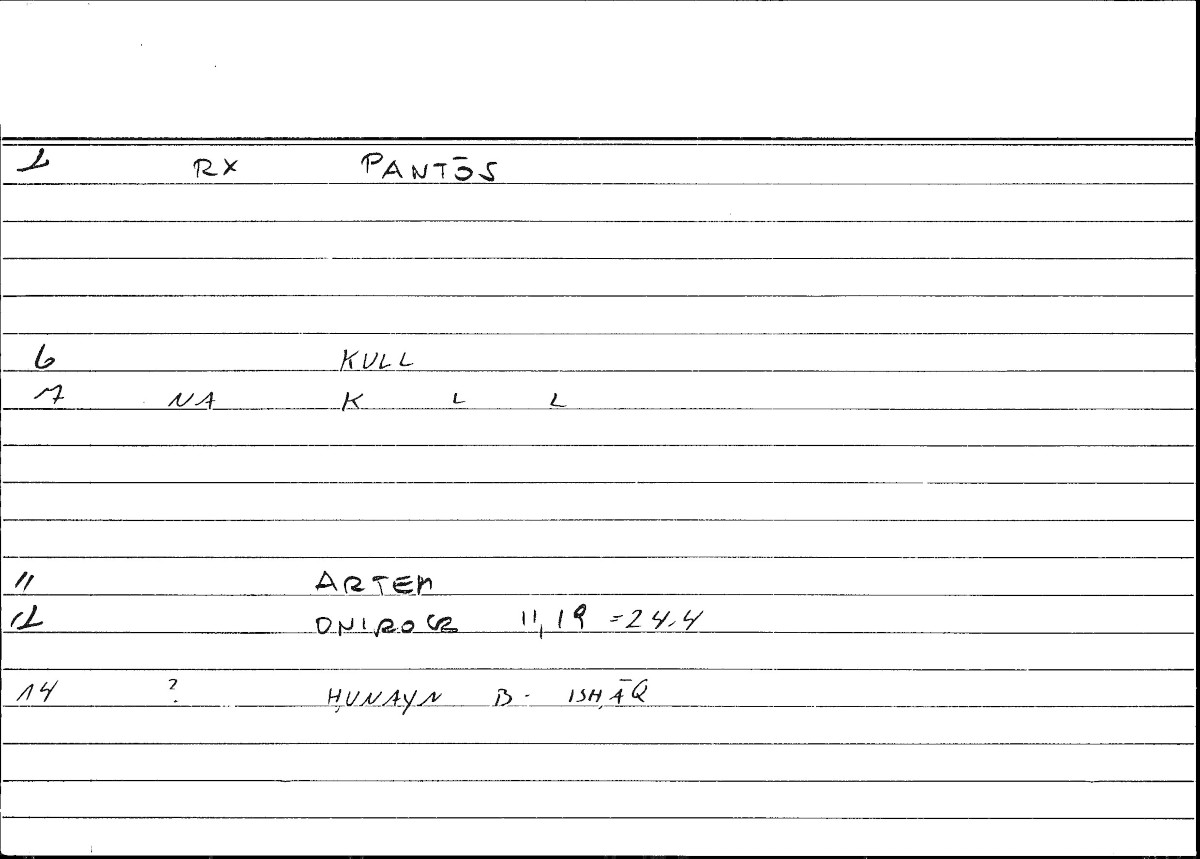 1 RX PANTŌS
6 KULL
7 NA K L L
11 ARTEM
12 ONIROCR 11,19 =24.4
14 ? ḤUNAYN B. ISḤĀQ